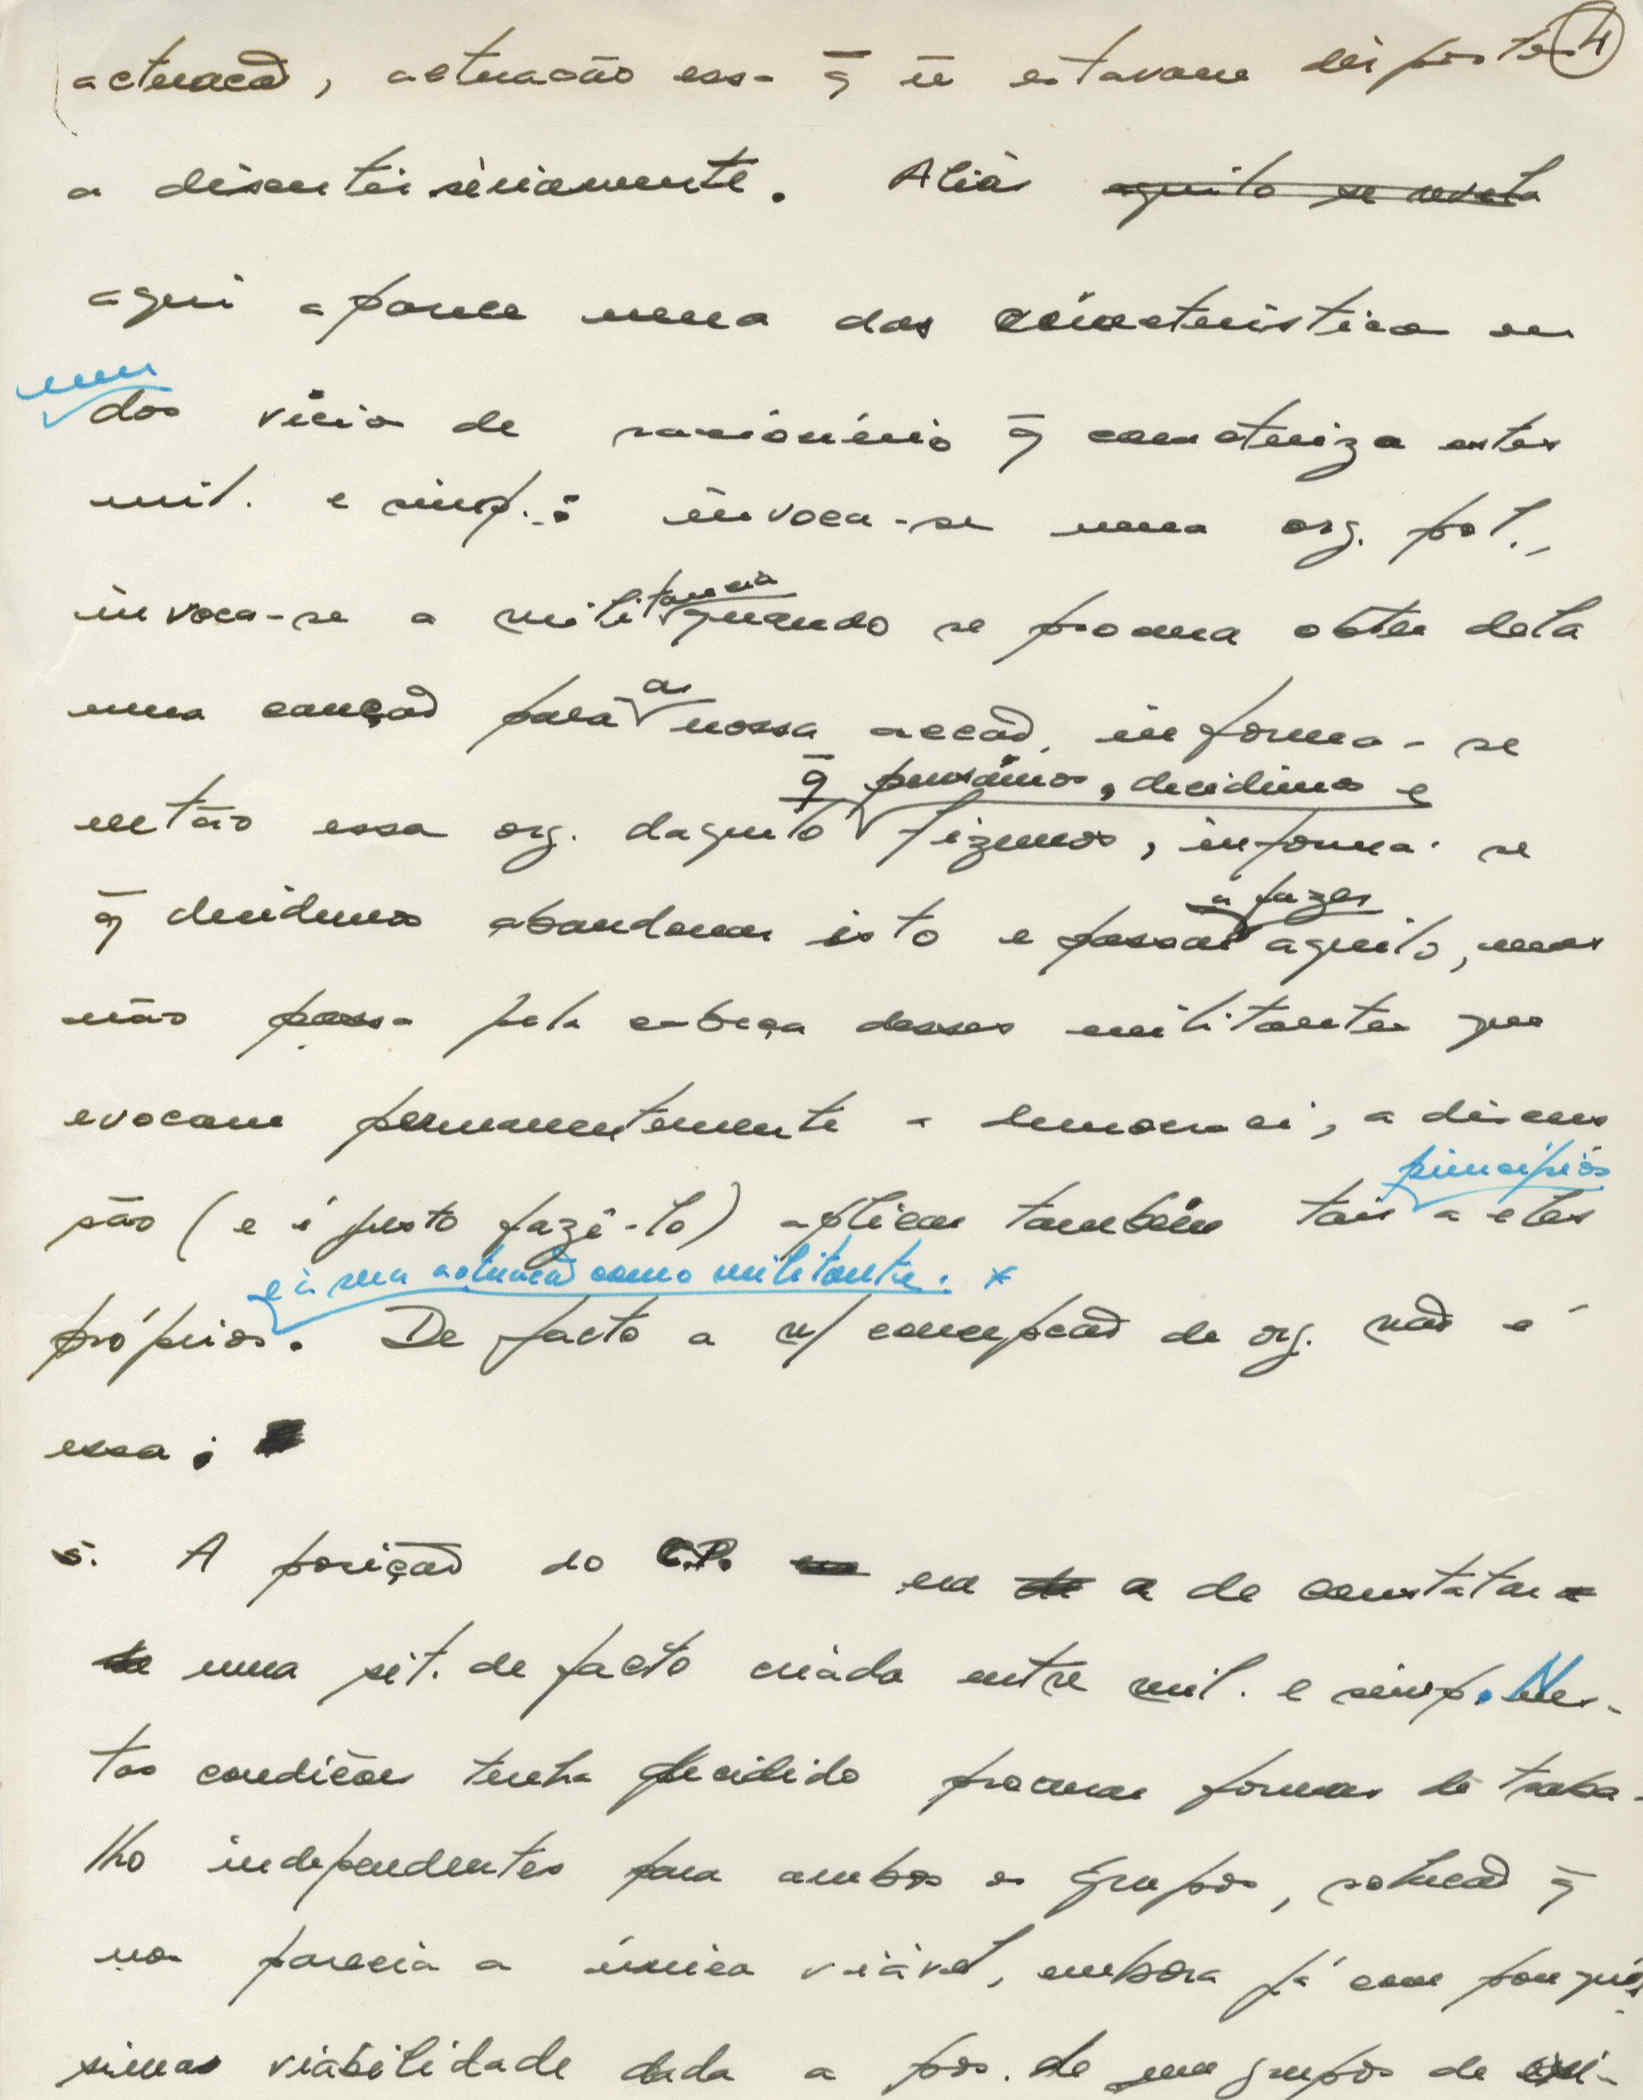 4
actuação, actuação essa q̄ ñ estavam dispostos
a discutir sèriamente. Aliás aquilo se revela
aqui aparece uma das característica ou
um dos vícios de raciocínio q̄ caracteriza estes
mil. e simp.: invoca-se uma org. pol.,
invoca-se a militancia quando se procura obter dela
uma caução para as nossa acção, informa-se
então essa org. daquilo q̄ pensámos, decidimos e fizemos, informa-se
q̄ decidimos abandonar isto e passar a fazer aquilo, mas
não passa pela cabeça desses militantes que
evocam permanentemente a democraci, a discus
são (e é justo fazê-lo) aplicar também tais princípios a eles
próprios e à sua actuação como militante. * De facto a n/ concepção de org. não é
essa;
5. A posição do C.P. era a de constatar
uma sit. de facto criada entre mil. e simp. Nes-
tas condições tenha decidido procurar formas de traba-
lho independentes para ambos os grupos, solução q̄
nos parecia a única viável, embora já com pouquís
simas viabilidade dada a pos. de um grupos de mi-